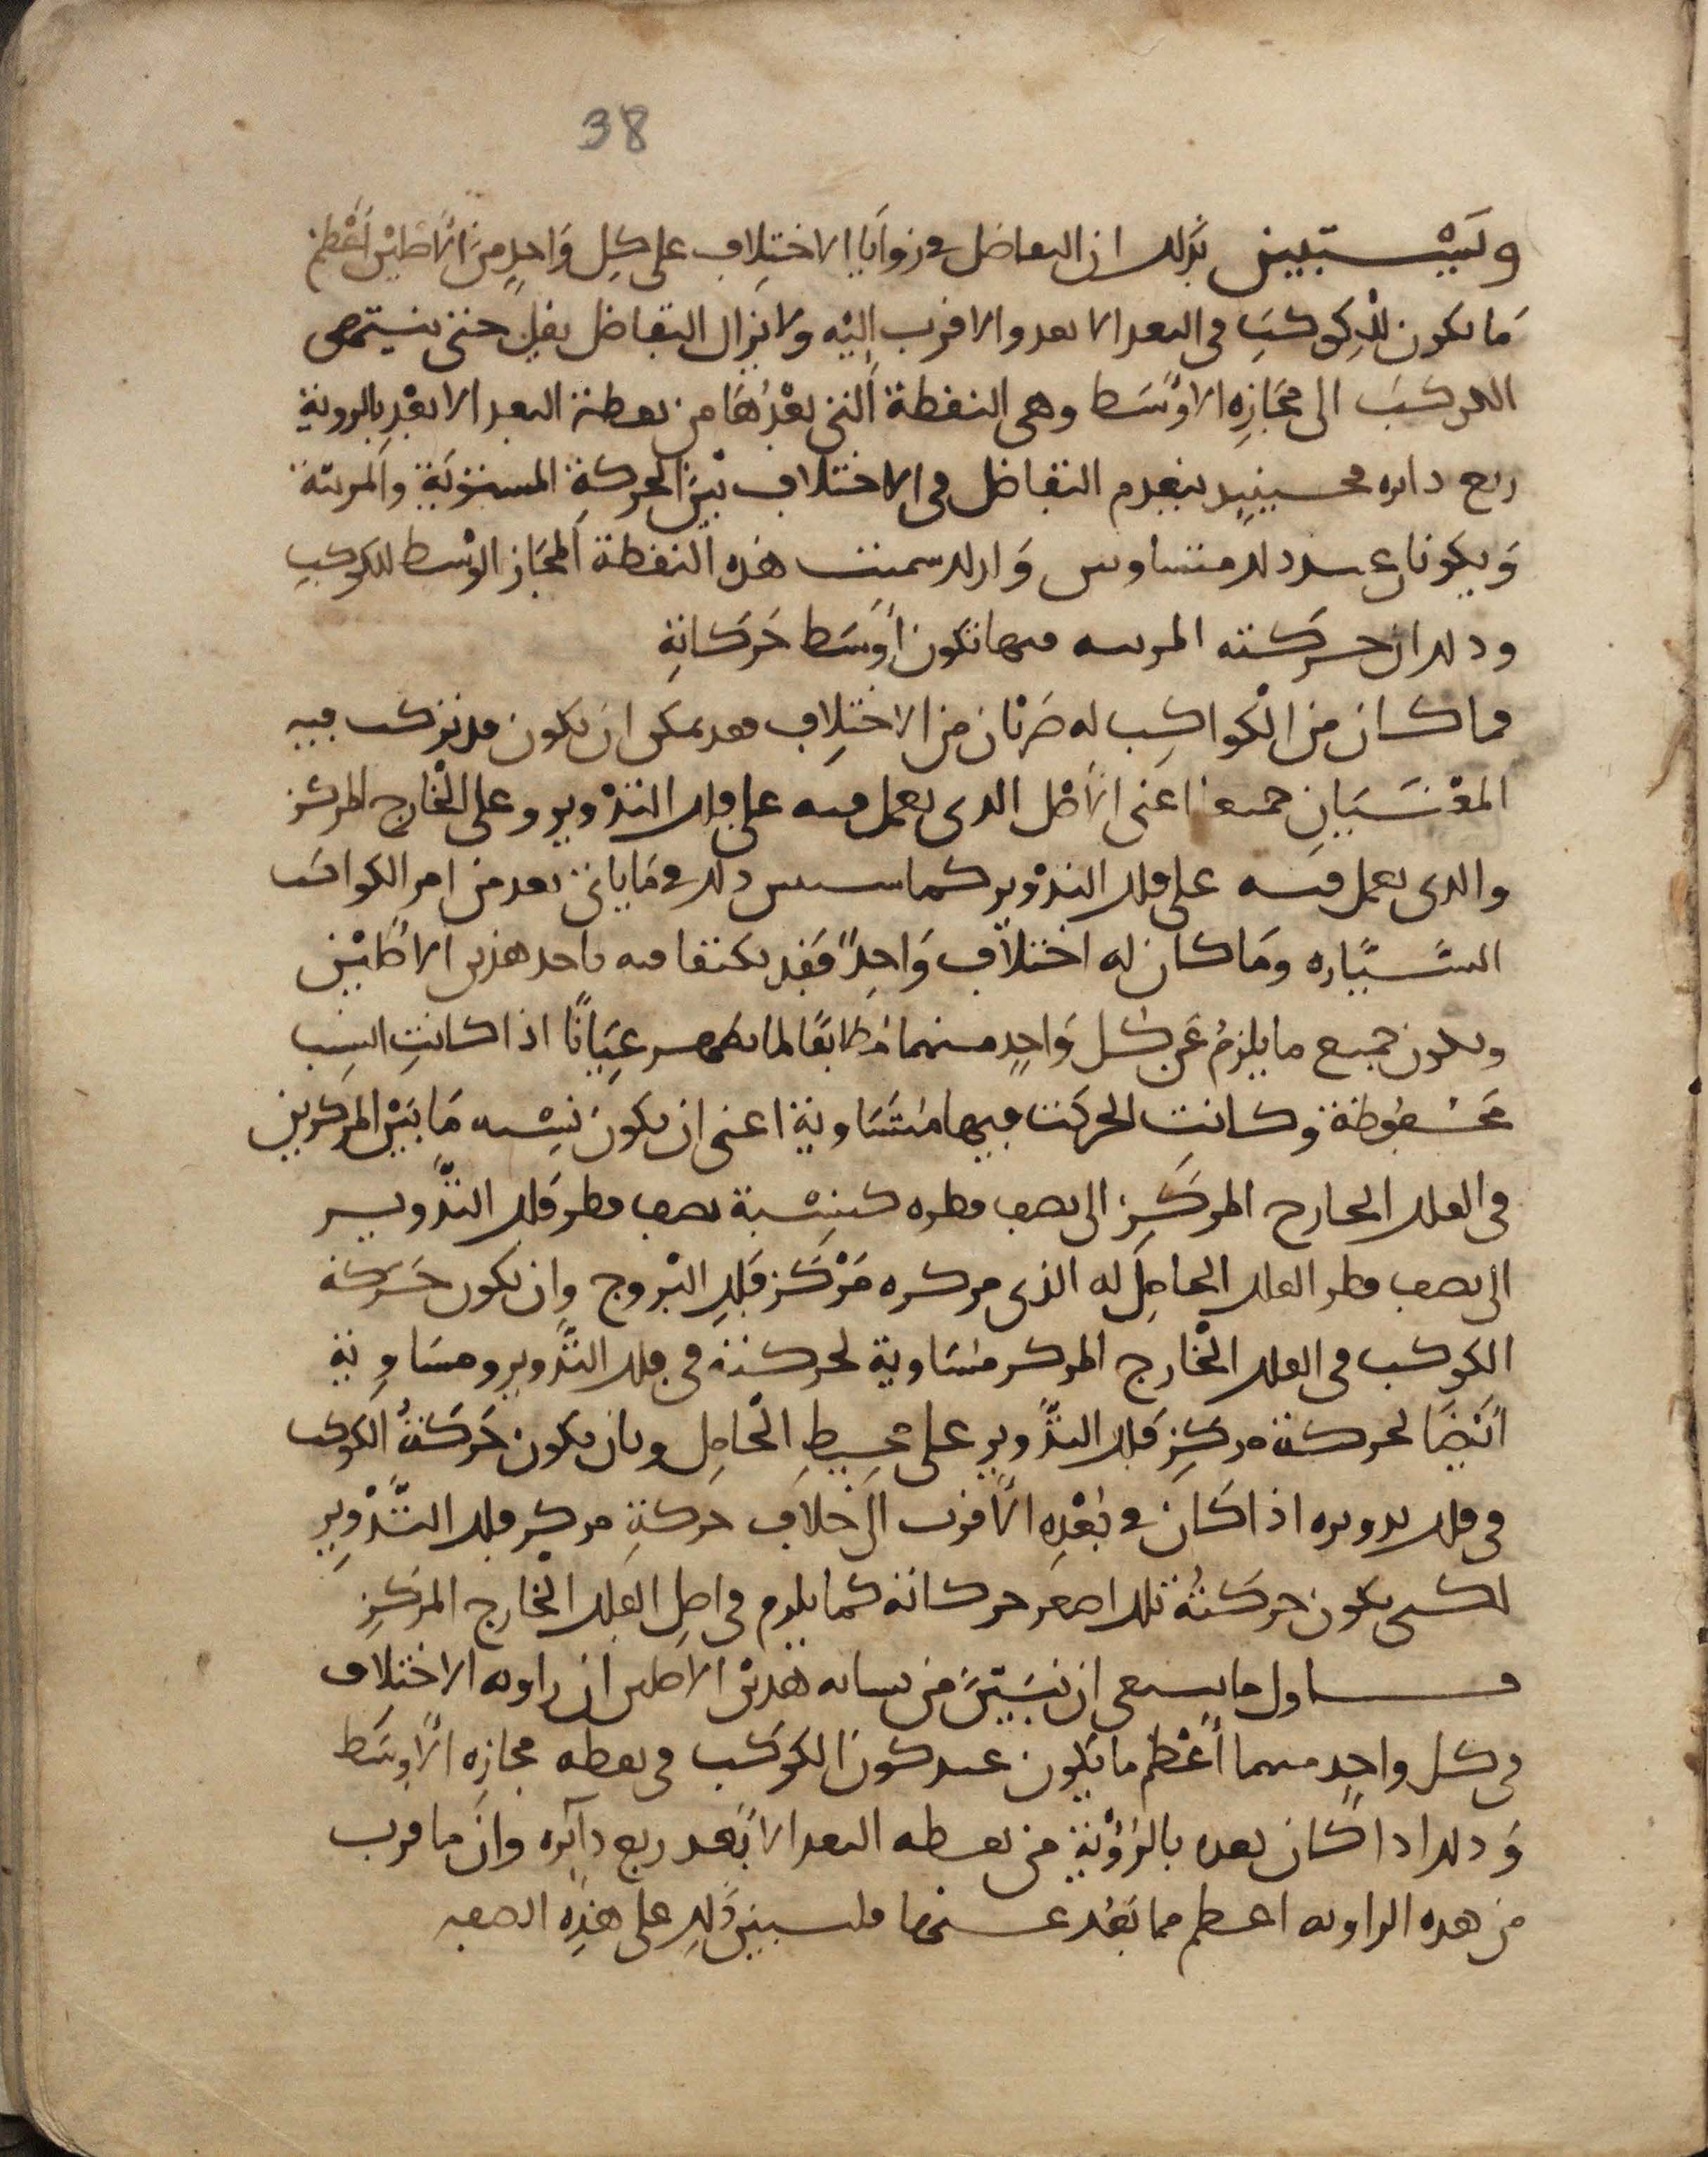 38
ويستبين بذلك ان التفاضل في زوايا الاختلاف على كل واحد من الاصلين أعظم
ما يكون للكوكب في البعد الابعد والاقرب اليه ولا يزال التفاضل يقل حتى ينتهى
الكوكب الى مجازه الاوسط وهى النقطة التى بعدها من نقطة البعد الابعد بالروية
ربع دايره فحينيذ ينعدم التفاضل في الاختلاف بين الحركة المستوية والمرية
ويكونا عند ذلك متساويين ولذلك سميت هذه النقطة المجاز الوسط للكوكب
وذلك ان حركته المرية فيها تكون أوسط حركاته
فما كان من الكواكب له ضربان من الاختلاف فقد يمكن ان يكون قد تركب فيه
المعنيان جميعا اعنى الاصل الذى يعمل فيه على فلك التدوير وعلى الخارج المركز
والذى يعمل فيه على فلك التدوير كما سنبين ذلك في ما ياتى بعد من امر الكواكب
السيّاره وما كان له اختلاف واحد فقد يكتفا فيه باحد هذين الاصلين
ويكون جميع ما يلزم عن كل واحد منهما مطابقا لما يظهر عيانا اذا كانت النسب
محفوظة وكانت الحركت فيها متساوية اعنى ان يكون نسبه ما بين المركزين
في الفلك الخارج المركز الى نصف قطره كنسبة نصف قطر فلك التدوير
الى نصف قطر الفلك الحامل له الذى مركزه مركز فلك البروج وان يكون حركة
الكوكب في الفلك الخارج المركز مساوية لحركته في فلك التدوير ومساوية
أيضا لحركة مركز فلك التدوير على محيط الحامل وبان يكون حركة الكوكب
في فلك تدويره اذا كان في بعده الاقرب الى خلاف حركة مركز فلك التّدوير
لكى يكون حركته تلك اصغر حركاته كما يلزم في اصل الفلك الخارج المركز
فاول ما ينبغى ان نبيّن من بيانه هذين الاصلين ان زاويه الاختلاف
في كل واحد منهما أعظم ما يكون عند كون الكوكب في نقطه مجازه الاوسط
وذلك اذا كان بعده بالرؤية من نقطه البعد الابعد ربع دآيره وان ما قرب
من هذه الزاويه اعظم مما بعد عنها فلنبين ذلك على هذه الصفه